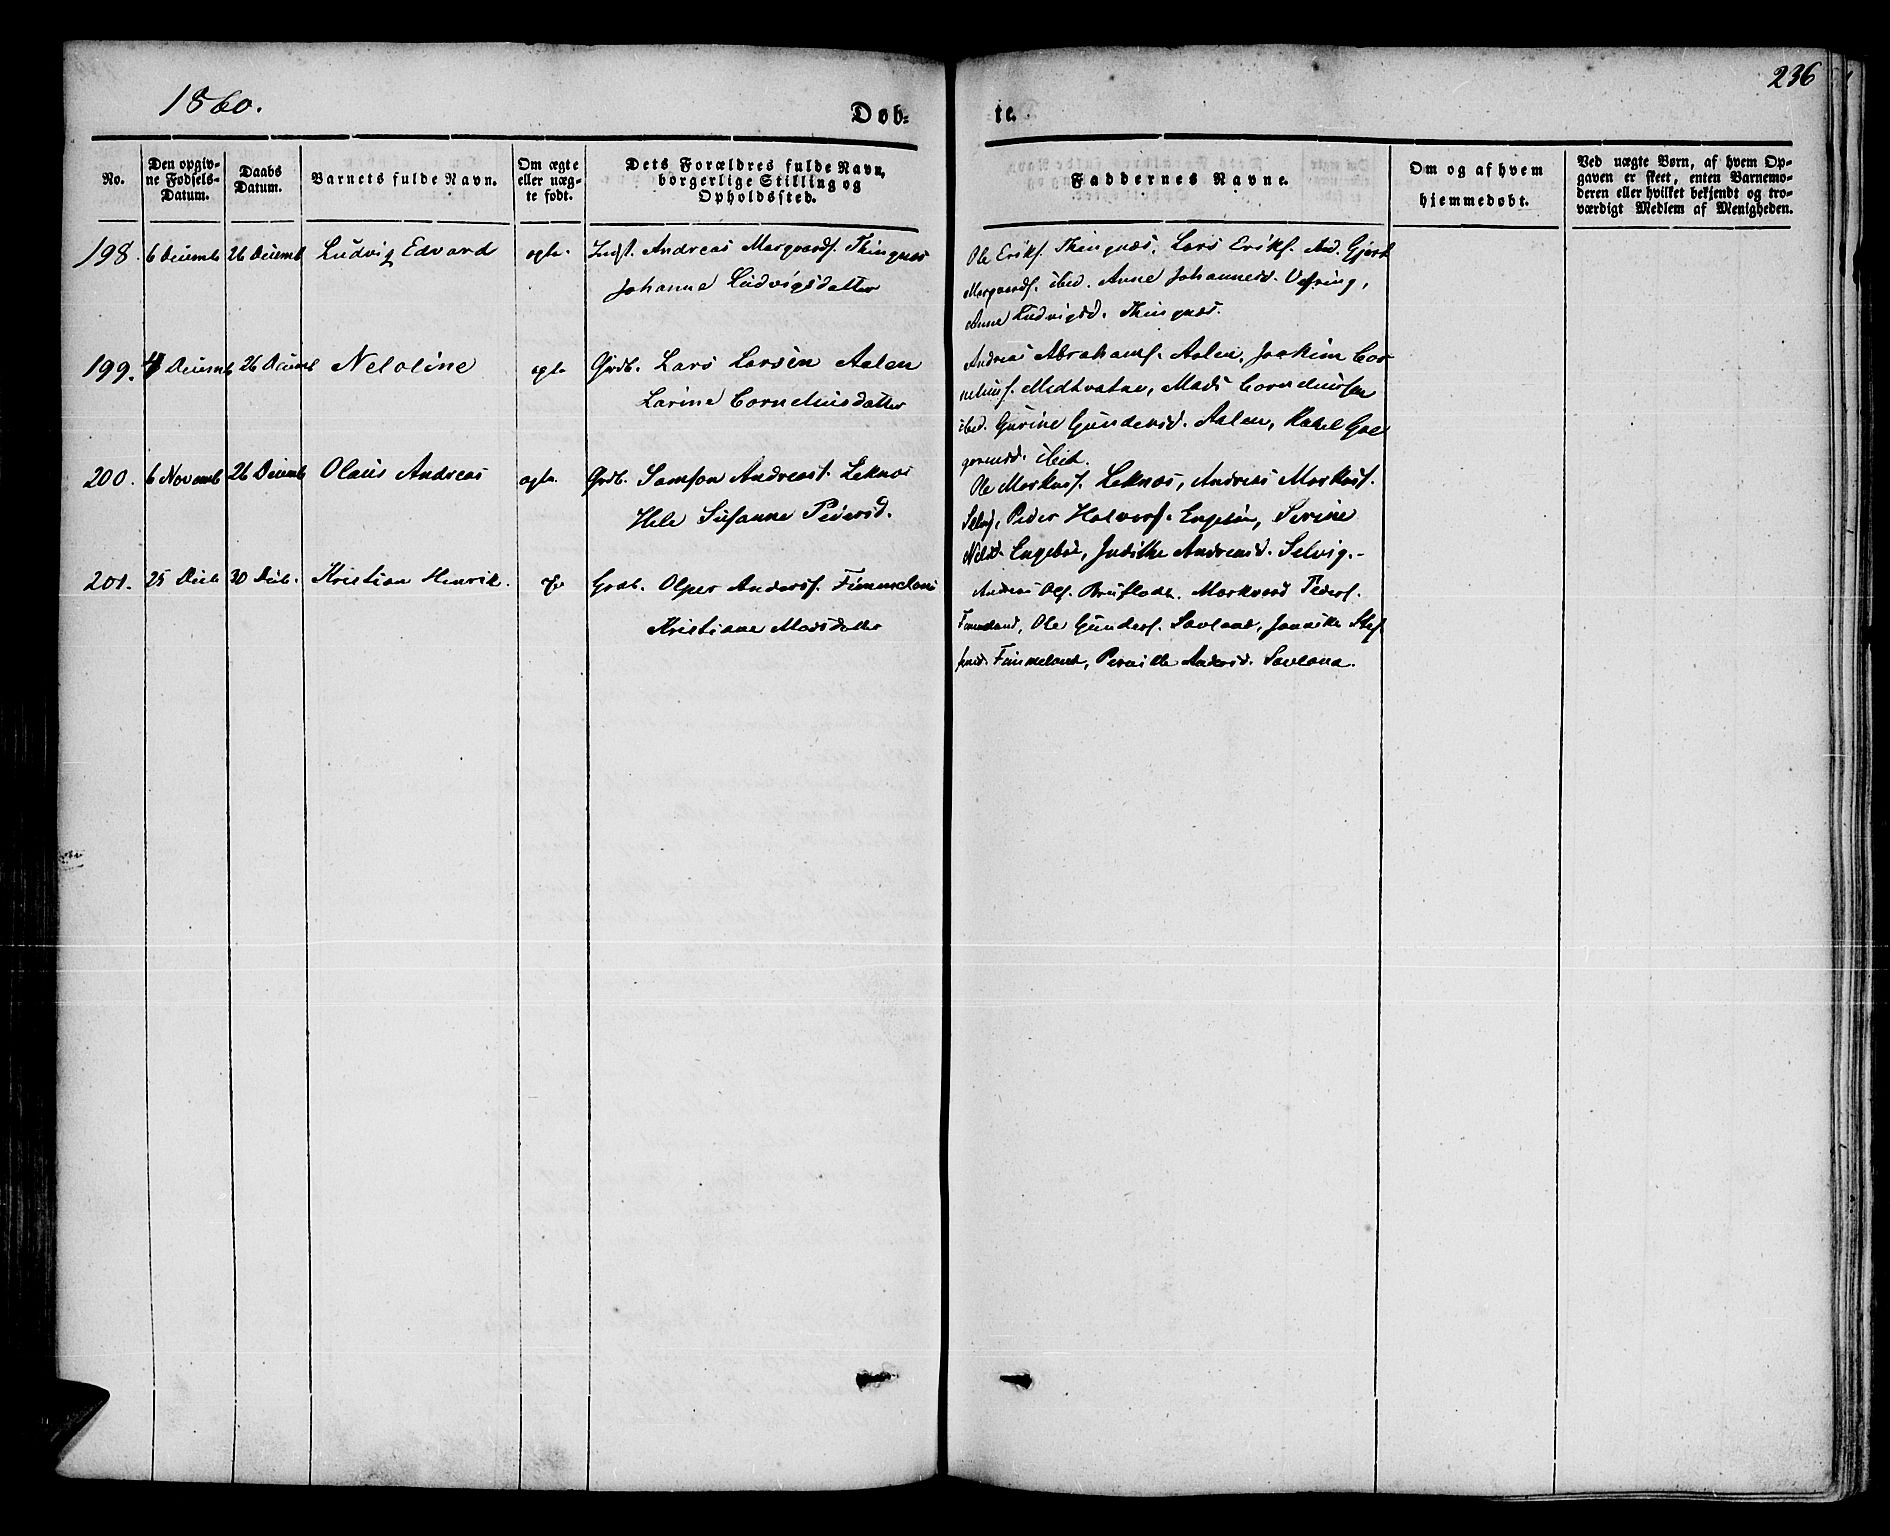 1860.
Døb-
te.
236
No.
Den opgiv-
ne Fødsels-
Datum.
Daabs
Datum.
Barnets fulde Navn.
Om ægte
eller uæg-
te født.
Dets Forældres fulde Navn,
borgerlige Stilling og
Opholdssted.
Faddernes Navne.
Om og af hvem
hjemmedøbt.
Ved uægte Børn, af hvem Op-
gaven er skeet, enten Barnemo-
deren eller hvilket bekjendt og tro-
værdigt Medlem af Menigheden.
198. 6 Decemb 26 Decemb Ludvig Edvard ægte. Indst. Andreas Marqvards. Thingnæs
Johanne Ludvigsdatter
Ole Eriks. Thingnæs, Lars Eriks. And. Gjert
Marqvards. ibid. Anne Johannesd. Vefring,
Anne Ludvigsd. Thingnæs.
199. Decemb 26 Decemb Neloline ægte Grdb. Lars Larsen Aalen
Larine Corneliusdatter
Andreas Abrahams. Aalen, Joakim Cor-
nelius. Midtvatne, Mads Corneliussen
ibid. Gurine Gundersd. Aalen, Rakel
ibid.
200. 6 Novemb 26 Decemb Olaus Andreas ægte. Grdb. Samson Andreas. Leknæs
Hele Susanne Pedersd.
Ole Markus. Leknæs, Andreas Markus.
Selvig, Peder Halvors. Engebø, Serine
Nelsd. Engebø, Judithe Andreasd. Selvig.-
201. 25 Decb 30 Decb. Kristian Henrik. Grdb. Anders. Fimmeland
Kristiane Madsdatter
Andreas Ols. Brufladt. Markvard Peders.
Fimmeland, Ole Gunders. Savland, Jannike Stef
Fimmeland, Pernille Andersd. Savland.